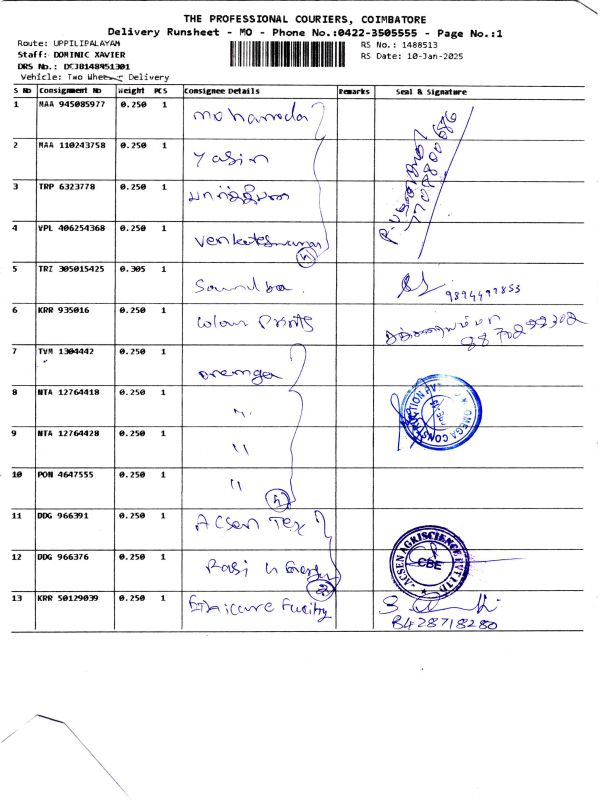 THE PROFESSIONAL COURIERS, COIMBATORE
Delivery Runsheet - MO - Phone No.:0422-3505555 - Page No.:1
Route: UPPILIPALAYAM
RS No.: 1488513
Staff: DOMINIC XAVIER
RS Date: 10-Jan-2025
DRS No.: DCJB148851301
Vehicle: Two Wheeler Delivery
S No Consignment No Weight PCS Consignee Details Remarks Seal & Signature
1 MAA 945085977 0.250 1
2 MAA 110243758 0.250 1 Yasin
3 TRP 6323778 0.250 1
4 VPL 406254368 0.250 1
5 TRZ 305015425 0.305 1
9894499853
6 KRR 935016 0.250 1 Colour Prints
8870222302
7 TVM 1304442 0.250 1
8 NTA 12764418 0.250 1 "
OMEGA CONSTRUCTION
9 NTA 12764428 0.250 1 "
10 PON 4647555 0.250 1 "
11 DDG 966391 0.250 1 Acsen Tex
ACSEN AGRISCIENCE PVT LTD
CBE
12 DDG 966376 0.250 1 Rasi
13 KRR 50129039 0.250 1 Ethicure Facility
8428718280